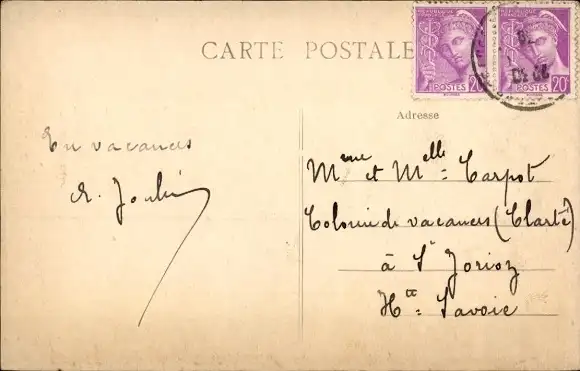 CARTE POSTALE
RÉPUBLIQUE FRANÇAISE
20c
POSTES
20c
POSTES
Adresse
En vacances
Mme et Melle = Carpot
Colonie de vacances (Clarté)
à St Jorioz
Hte = Savoie